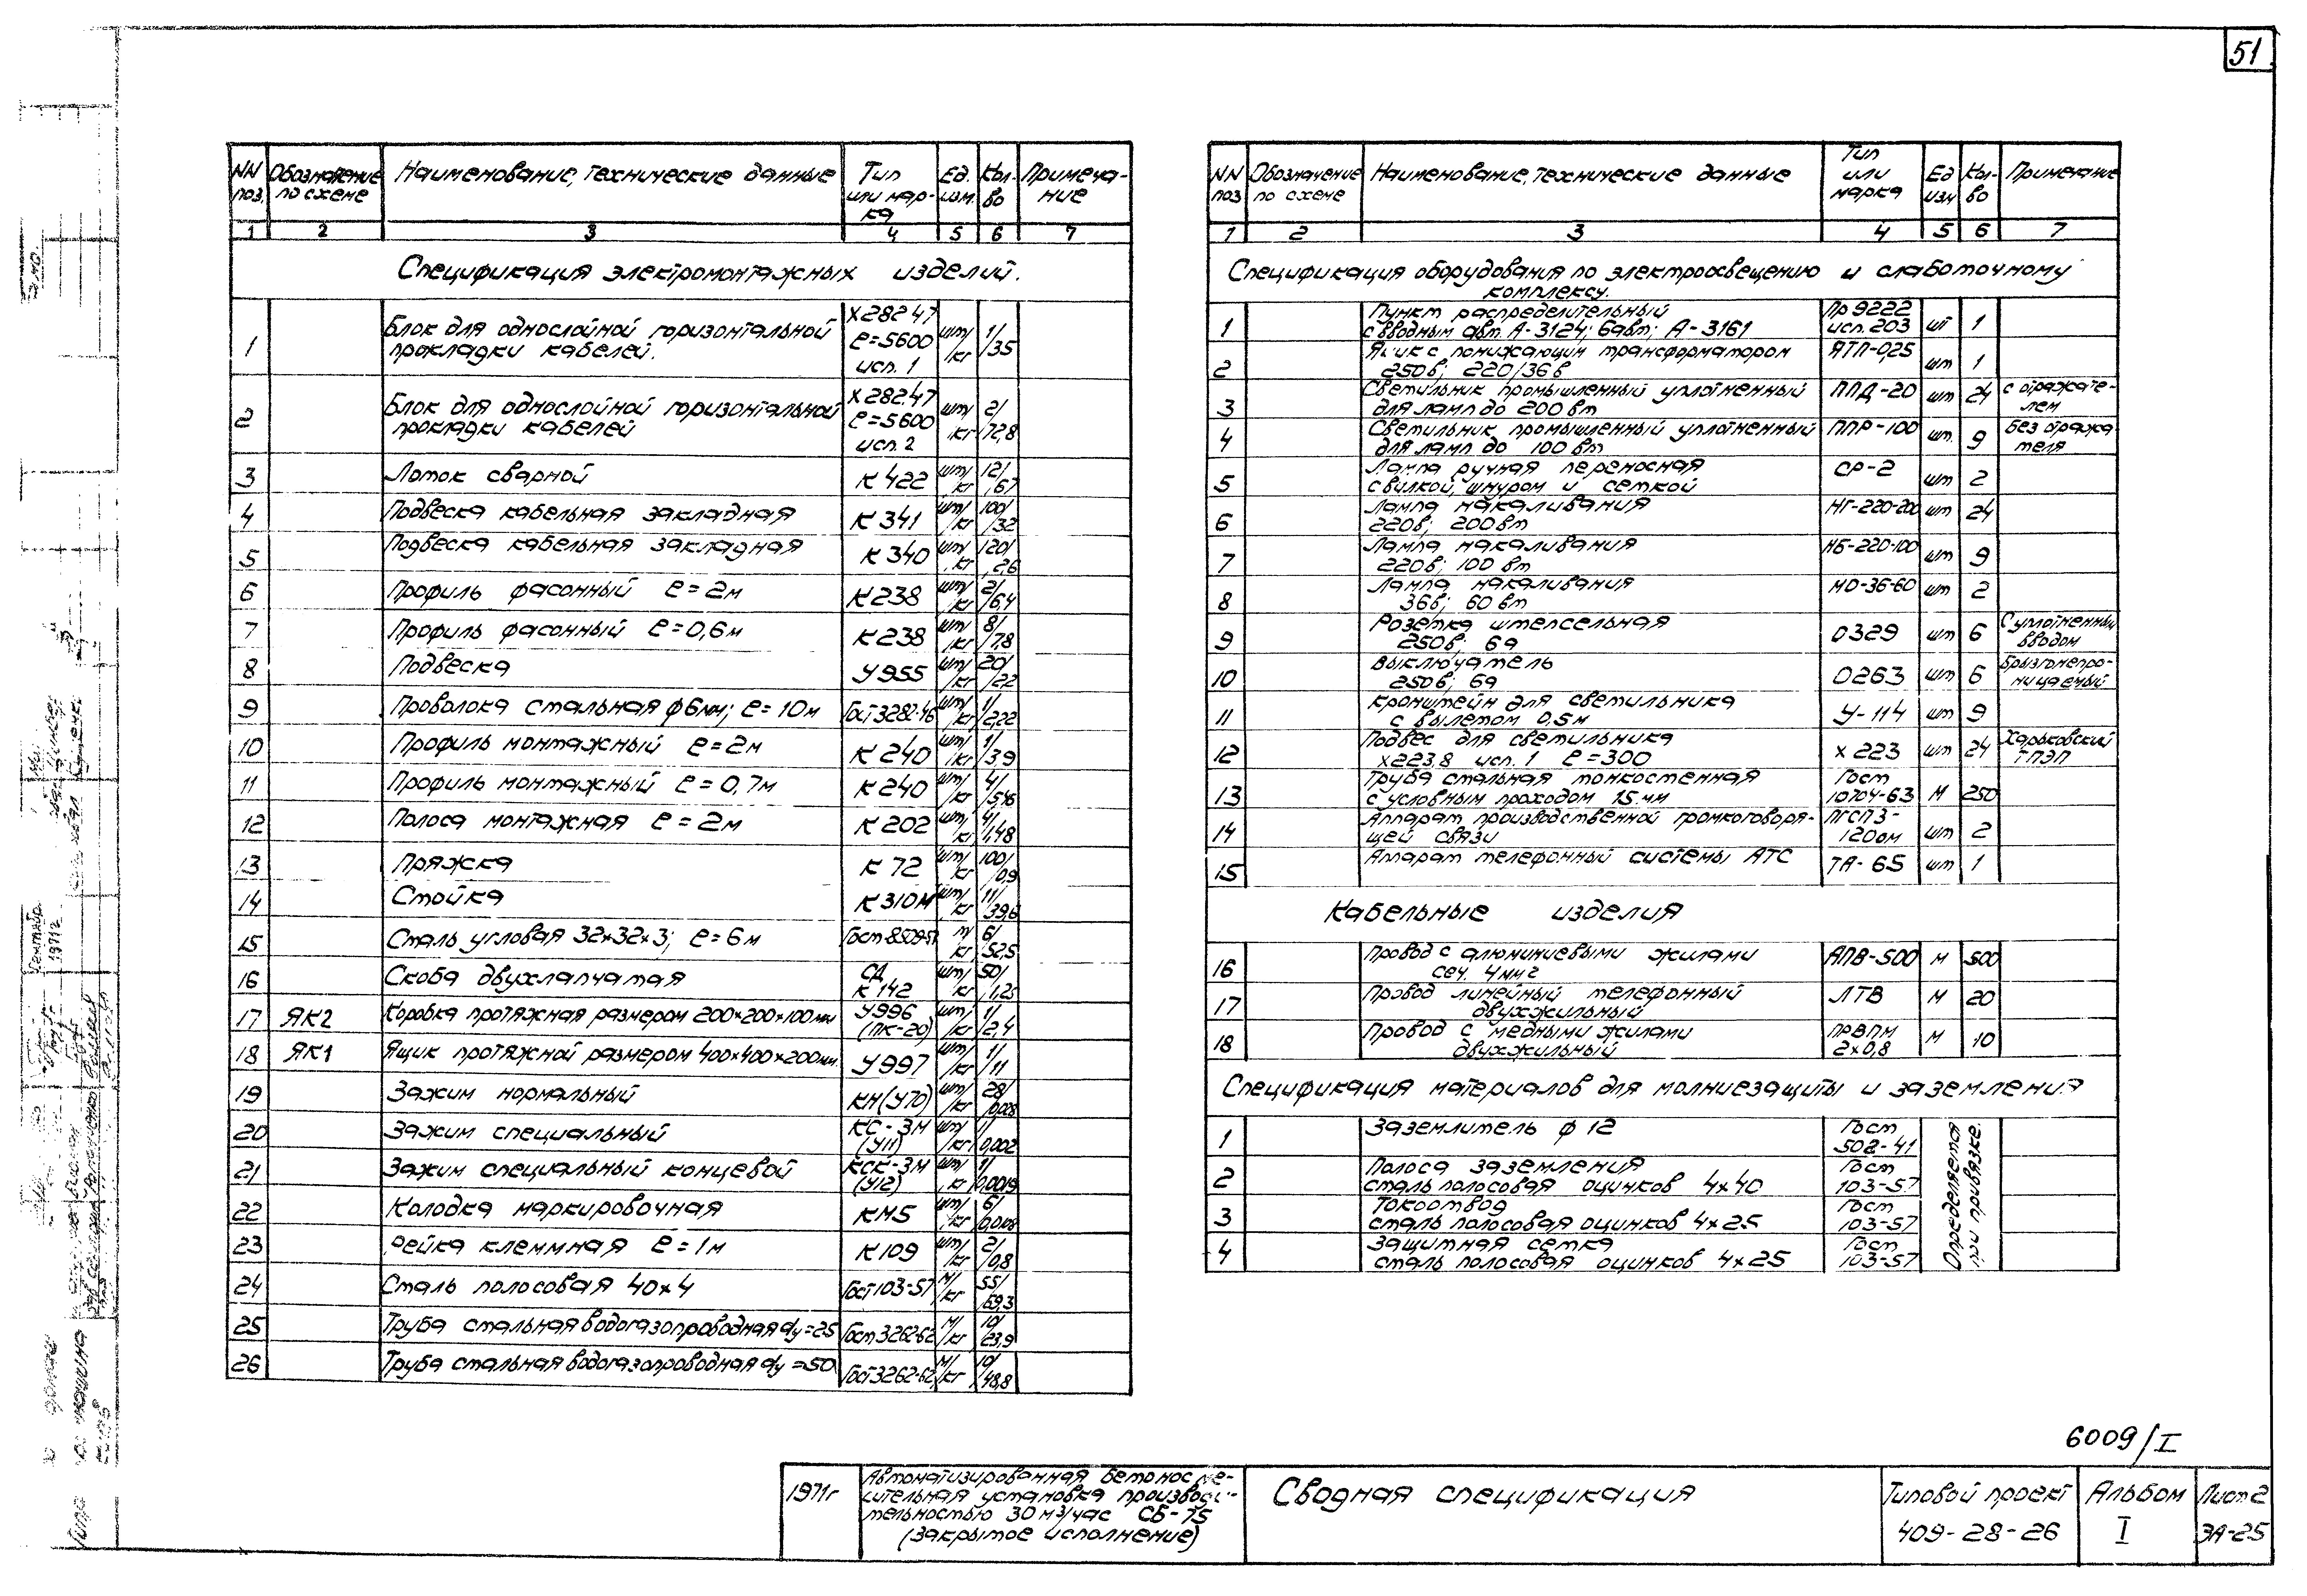 51
NN поз. Обозначение по схеме Наименование, технические данные Тип или мар-ка Ед. изм. Кол-во Примеча-ние
1 2 3 4 5 6 7
Спецификация электромонтажных изделий.
1 Блок для однослойной горизонтальной прокладки кабелей. Х28247 ℓ=5600 исп. 1 шт/кг 1/35
2 Блок для однослойной горизонтальной прокладки кабелей Х282.47 ℓ=5600 исп. 2 шт/кг 2/72,8
3 Лоток сварной К 422 шт/кг 12/
4 Подвеска кабельная закладная К 341 шт/кг 100/32
5 Подвеска кабельная закладная К 340 шт/кг 120/
6 Профиль фасонный ℓ=2м К238 шт/кг 2/6,4
7 Профиль фасонный ℓ=0,6м К238 шт/кг 8/7,8
8 Подвеска У955 шт/кг 20/
9 Проволока стальная ф6мм; ℓ=10м Гост 3282-46 шт/кг 1/2,22
10 Профиль монтажный ℓ=2м К 240 шт/кг 1/3,9
11 Профиль монтажный ℓ=0,7м К 240 шт/кг 4/
12 Полоса монтажная ℓ=2м К 202 шт/кг 4/
13 Пряжка К 72 шт/кг 100/0,9
14 Стойка К 310М шт/кг 11/39,6
15 Сталь угловая 32×32×3; ℓ=6м Гост-8509-57 м/кг 6/52,5
16 Скоба двухлапчатая СД К 142 шт/кг 50/1,25
17 ЯК2 Коробка протяжная размером 200×200×100мм У996 (ПК-20) шт/кг 1/2,4
18 ЯК1 Ящик протяжной размером 400×400×200мм. У997 шт/кг 1/11
19 Зажим нормальный КН(У10) шт/кг 28/
20 Зажим специальный КС-3М (У11) шт/кг 1/0,002
21 Зажим специальный концевой КСК-3М (У12) шт/кг 1/0,0019
22 Колодка маркировочная КМ5 шт/кг 6/
23 Рейка клеммная ℓ=1м К109 шт/кг 2/0,8
24 Сталь полосовая 40×4 Гост 103-57 м/кг 55/69,3
25 Труба стальная водогазопроводная dу=25 Гост 3262-62 м/кг 10/23,9
26 Труба стальная водогазопроводная dу=50 Гост 3262-62 м/кг 10/48,8
NN поз Обозначение по схеме Наименование, технические данные Тип или марка Ед изм Кол-во Примечание
1 2 3 4 5 6 7
Спецификация оборудования по электроосвещению и слаботочному
комплексу.
1 Пункт распределительный с вводным авт. А-3124; 6авт; А-3161 Пр 9222 исп. 203 шт 1
2 Ящик с понижающим трансформатором 250в; 220/36в ЯТП-0,25 шт 1
3 Светильник промышленный уплотненный для ламп до 200 вт ППД-20 шт 24 с отражате-лем
4 Светильник промышленный уплотненный для ламп до 100 вт ППР-100 шт. 9 без отража теля
5 Лампа ручная переносная с вилкой, шнуром и сеткой СР-2 шт 2
6 Лампа накаливания 220в; 200вт НГ-220-200 шт 24
7 Лампа накаливания 220в; 100 вт НБ-220-100 шт 9
8 Лампа накаливания 36в; 60 вт МО-36-60 шт 2
9 Розетка штепсельная 250в; 6а 0329 шт 6 С уплотненным вводом
10 Выключатель 250в; 6а 0263 шт 6 Брызгонепро-ницаемый
11 Кронштейн для светильника с вылетом 0,5м У-114 шт 9
12 Подвес для светильника х223,8 исп. 1 ℓ=300 х 223 шт 24 Харьковский ТПЭП
13 Труба стальная тонкостенная с условным проходом 15 мм Гост 10704-63 М 250
14 Аппарат производственной громкоговоря-щей связи ПГСП3-120ом шт 2
15 Аппарат телефонный системы АТС ТА-65 шт 1
Кабельные изделия
16 Провод с алюминиевыми жилами сеч. 4мм2 АПВ-500 М 500
17 Провод линейный телефонный двухжильный ЛТВ М 20
18 Провод с медными жилами двухжильный ПРВПМ 2×0,8 М 10
Спецификация материалов для молниезащиты и заземления
1 Заземлитель ф 12 Гост 502-41
2 Полоса заземления сталь полосовая оцинков 4×40 Гост 103-57
3 Токоотвод сталь полосовая оцинков 4×25 Гост 103-57
4 Защитная сетка сталь полосовая оцинков 4×25 Гост 103-57
Определяется при привязке.
6009/I
1971г
Автоматизированная бетоносме-
сительная установка производи-
тельностью 30 м³/час СБ-75
(закрытое исполнение)
Сводная спецификация
Типовой проект
409-28-26
Альбом
I
Лист 2
ЭА-25